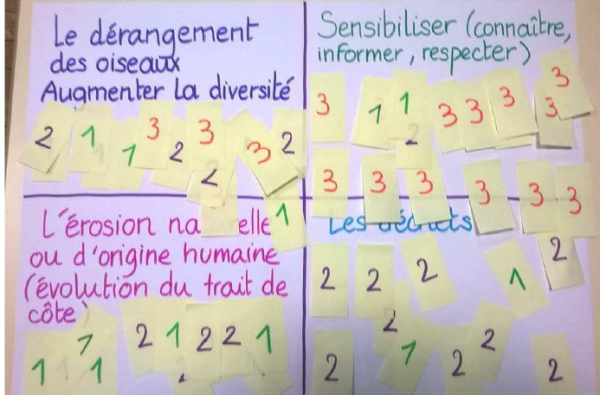 Le dérangement
des oiseaux
Augmenter la diversité
2 1 1 3 2 3 2 3 2
Sensibiliser (connaître,
informer, respecter)
3 1 1 2 3 3 3 3 3
3 3 3 3 3 3
1
L'érosion na elle
ou d'origine humaine
(évolution du trait de
côte)
1 1 1 2 1 2 2 1
Les déchets
2 2 2 1 2
2 2 1 2 2 2